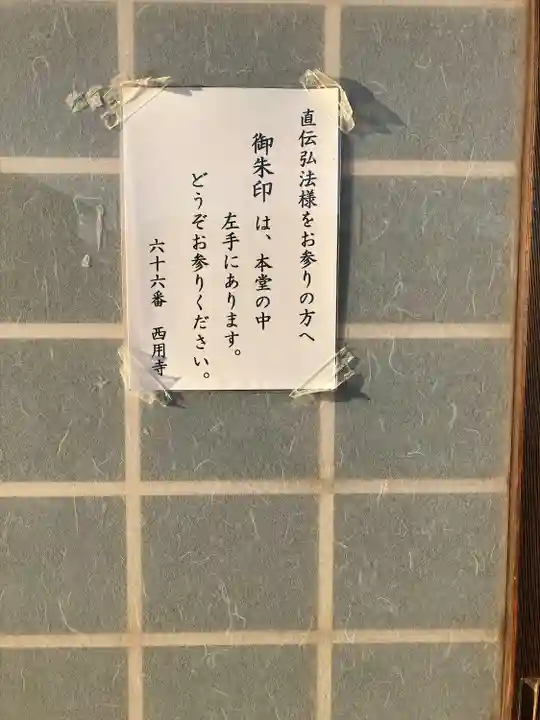 直伝弘法様をお参りの方へ
御朱印は、本堂の中
左手にあります。
どうぞお参りください。
六十六番 西用寺